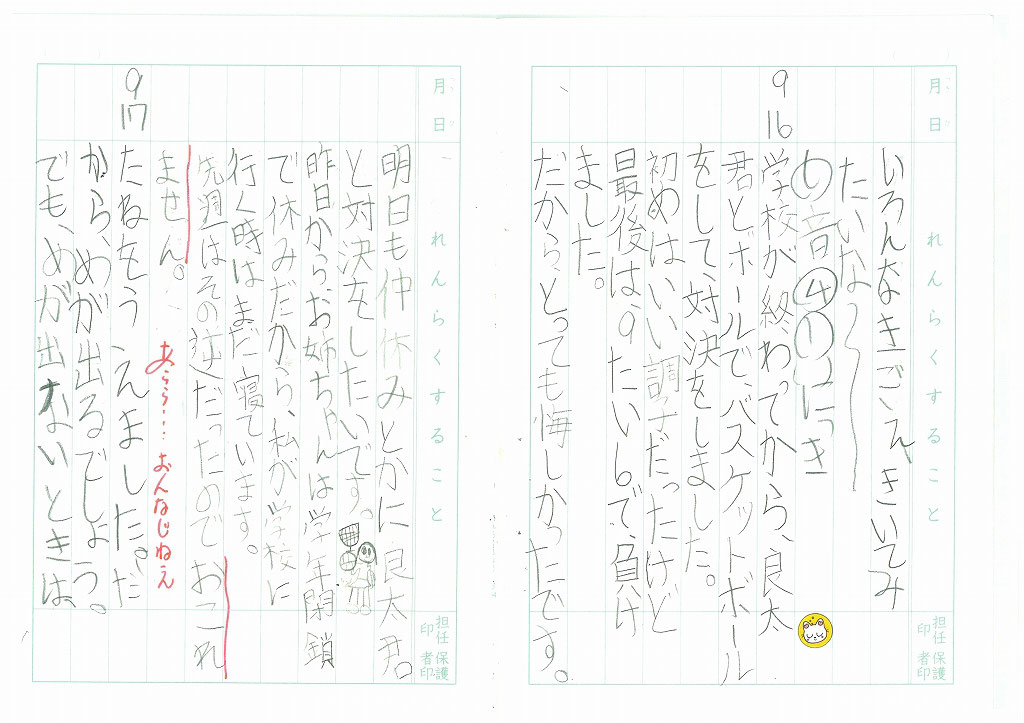 月 日
れんらくすること
担任印
保護者印
いろんなきごえきいてみ
たいな～
の音④①にっき
9 16
学校が終わってから、良太
君とボールで、バスケットボール
をして、対決をしました。
初めはいい調子だったけど
最後は、9たい6で、負け
ました。
だから、とっても悔しかったです。
月 日
れんらくすること
担任印
保護者印
明日も仲休みとかに良太君。
と対決をしたいです。
昨日から、お姉ちゃんは学年閉鎖
で休みだから、私が学校に
行く時はまだ寝ています。
先週はその逆だったのでおこれ
ません。
あらら…おんなじねえ
9 17
たねをうえました。だ
から、めが出るでしょう。
でも、めが出ないときは、